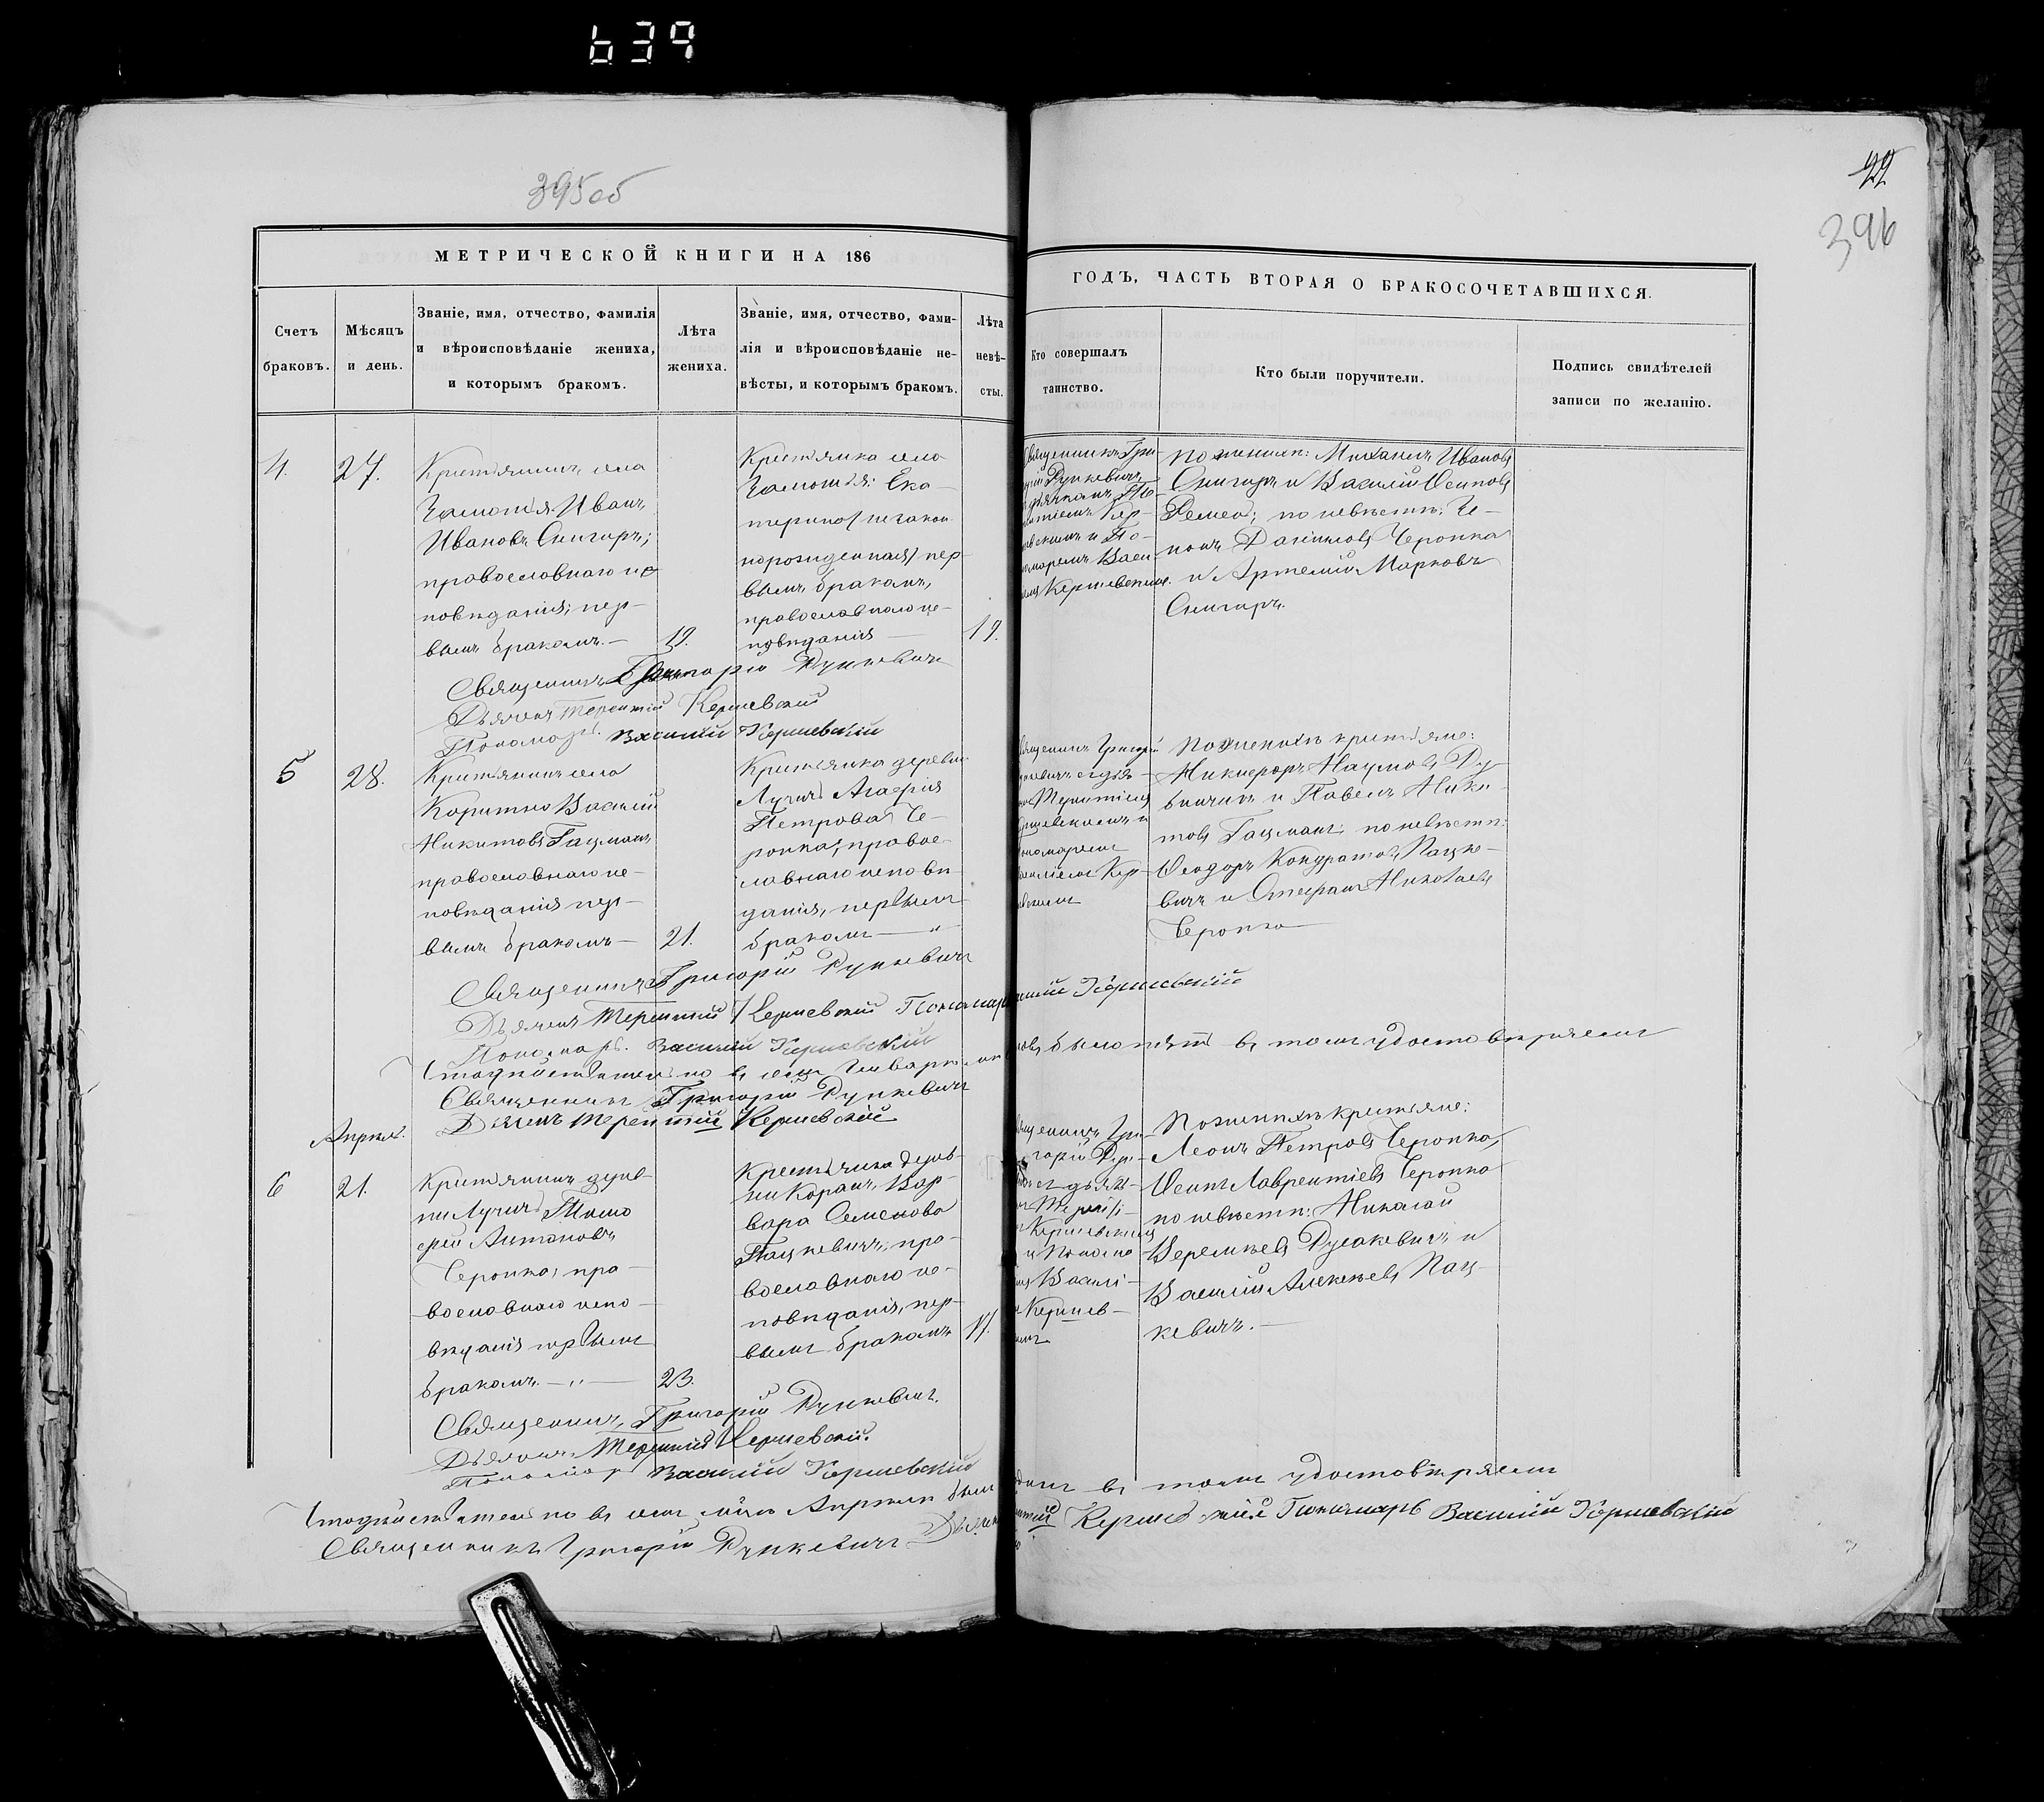 639
395 об
22
396
МЕТРИЧЕСКОЙ КНИГИ НА 186
ГОДЪ, ЧАСТЬ ВТОРАЯ О БРАКОСОЧЕТАВШИХСЯ.
Счетъ браковъ.
Мѣсяцъ и день.
Званіе, имя, отчество, фамилія
и вѣроисповѣданіе жениха,
и которымъ бракомъ.
Лѣта жениха.
Званіе, имя, отчество, фами-
лія и вѣроисповѣданіе не-
вѣсты, и которымъ бракомъ.
Лѣта невѣ-
сты.
Кто совершалъ
таинство.
Кто были поручители.
Подпись свидѣтелей
записи по желанію.
4.
27.
Крестьянинъ села
Иванъ
Ивановъ Снигиръ;
православнаго ис-
повѣданія; пер-
вымъ бракомъ.—
19.
Крестьянка села
Ека-
терина (незакон
норожденная) пер-
вымъ бракомъ,
православнаго ис-
повѣданія
19.
Священникъ Гри-
Рункевичъ
и По-
номаремъ Васи-
Кершевскимъ.
по женихѣ: Михаилъ Ивановъ
Снигиръ и Василій Осиповъ
по невѣстѣ:
Даниловъ Черопка
и Артемій Марковъ
Снигиръ.
Священникъ Григорій Рункевичъ
Дьячекъ Терентій Кершевскій
Пономарь Василій Кершевскій
5
28.
Крестьянинъ села
Коритно Василій
Никитовъ Гацманъ
православнаго ис-
повѣданія пер-
вымъ бракомъ—
21.
Крестьянка деревни
Лучичъ Агафія
Петрова Че-
ропка, правос-
лавнаго исповѣ-
данія, первымъ
бракомъ — „
Священникъ Григорій
Терентіемъ
Кершевскимъ и
пономаремъ
Василіемъ Кер-
шевскимъ
По женихѣ крестьяне:
Никифоръ Наумовъ Ду-
и Павелъ Ники-
товъ Гацманъ; по невѣстѣ:
Феодоръ Кондратовъ Пацке-
вичъ и Стефанъ Николаевъ
Черопка
Священникъ Григорій Рункевичъ
Дьячекъ Терентій Кершевскій Пономарь Василій Кершевскій
Пономарь Василій Кершевскій
Что дѣйствительно въ семъ Январѣ мѣсяцѣ браковъ было пять въ томъ удостовѣряемъ
Священникъ Григорій Рункевичъ
Дьячекъ Терентій Кершевскій
Апрѣль.
6
21.
Крестьянинъ дерев-
ни Лучичъ Тимо
фей Антоновъ
Черопка; пра-
вославнаго испо-
вѣданія первымъ
бракомъ. — „ —
23.
Крестьянка дерев-
ни Коранъ Вар-
вара Семенова
Пацкевичъ; пра-
вославнаго ис-
повѣданія, пер-
вымъ бракомъ
17.
Священникъ Гри-
горій Рун-
Кершевскимъ
и Понома
Василі-
Кершев-
скимъ
По женихѣ крестьяне:
Леонъ Петровъ Черопка,
Осипъ Лаврентіевъ Черопка
по невѣстѣ: Николай
Еремѣевъ Русакевичъ и
Василій Алексѣевъ Пац-
кевичъ.—
Священникъ Григорій Рункевичъ.
Дьячекъ Терентій Кершевскій.
Пономарь Василій Кершевскій
Что дѣйствительно въ семъ мѣс. Апрѣлѣ былъ одинъ въ томъ удостовѣряемъ
Священникъ Григорій Рункевичъ Дьячекъ Терентій Кершевскій Пономарь Василій Кершевскій